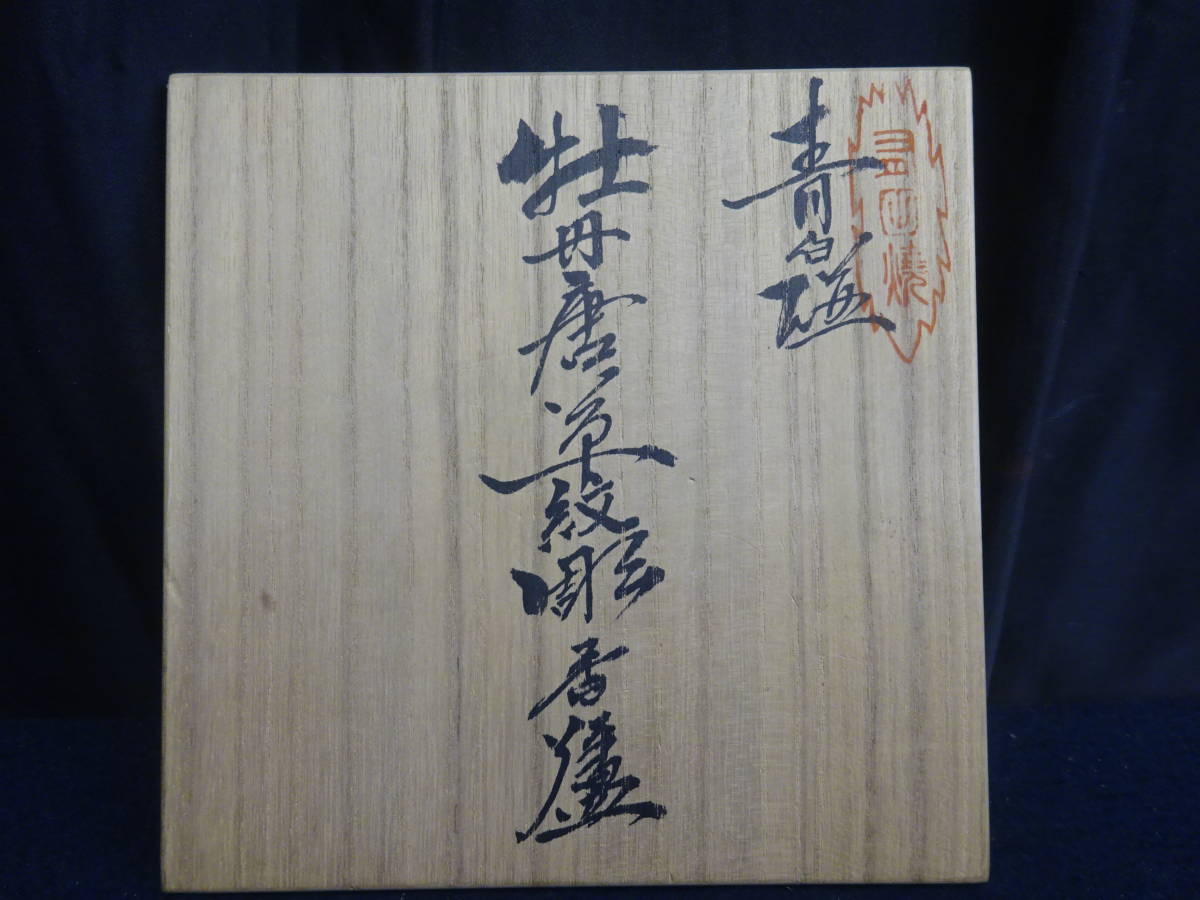 有田焼
青白磁
牡丹唐草紋彫香爐